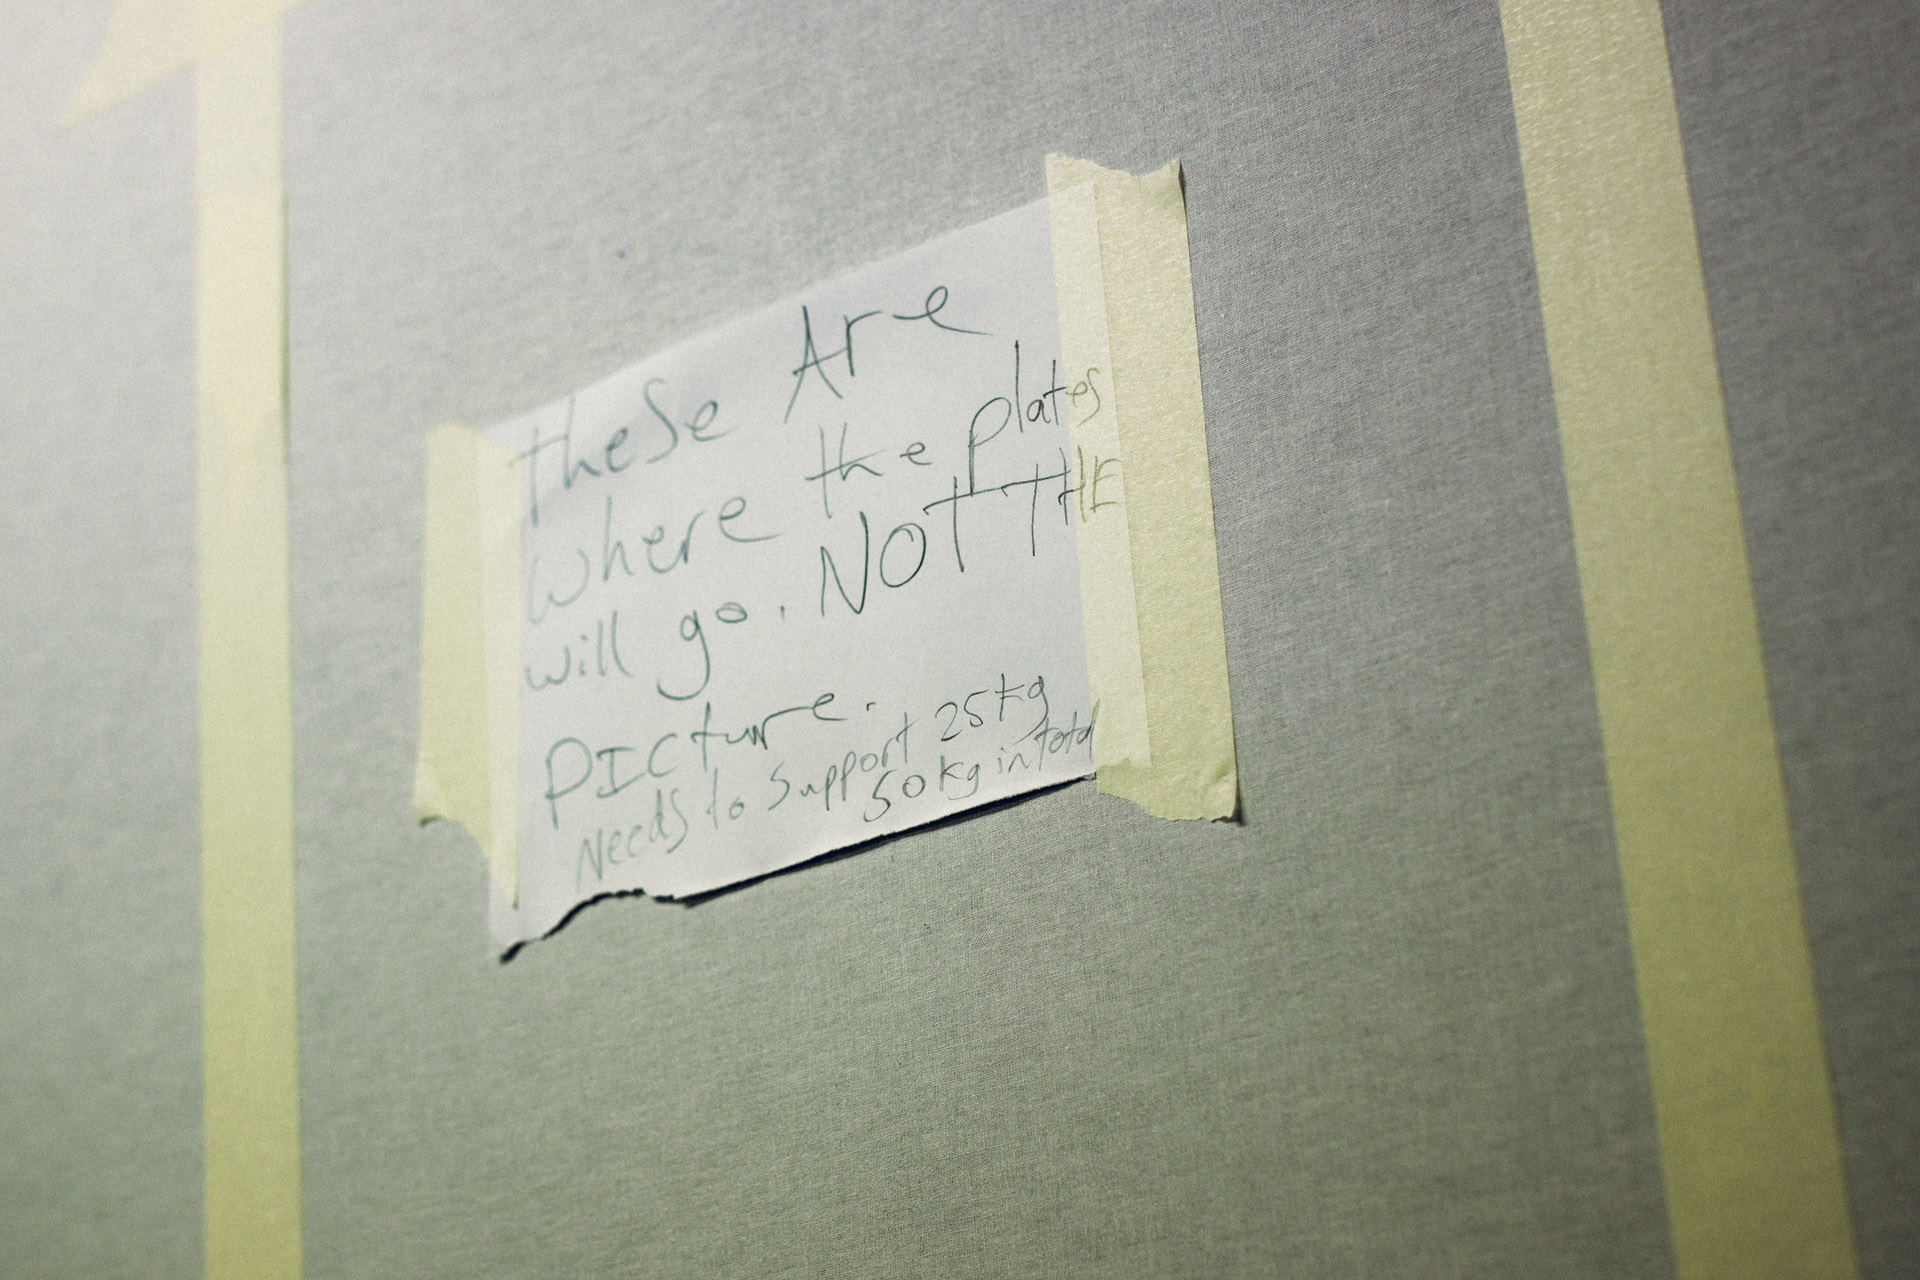 these Are
where the plates
will go. NOT THE
PIcture.
Needs to support 25kg
50kg in total